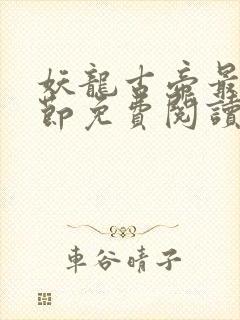 妖龍古帝最
節免費閱讀
車谷晴子